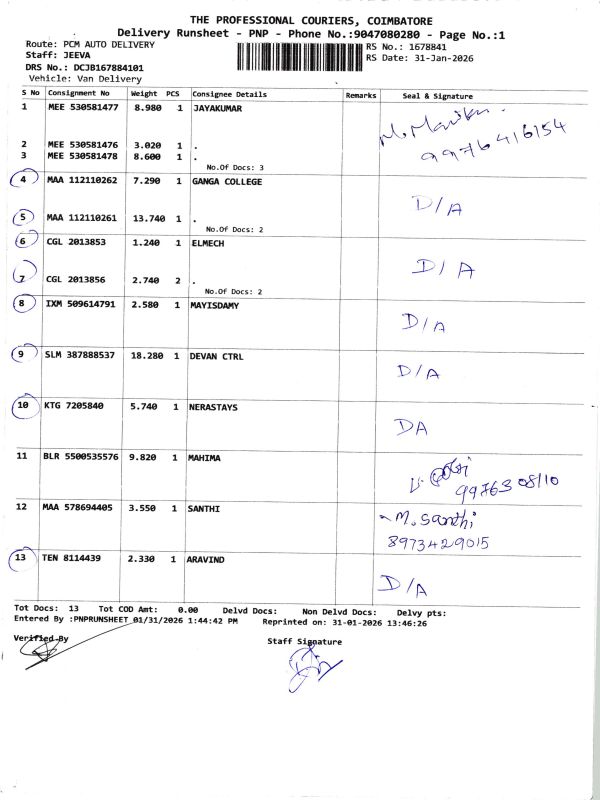 THE PROFESSIONAL COURIERS, COIMBATORE
Delivery Runsheet - PNP - Phone No.:9047080280 - Page No.:1
Route: PCM AUTO DELIVERY
RS No.: 1678841
Staff: JEEVA
RS Date: 31-Jan-2026
DRS No.: DCJB167884101
Vehicle: Van Delivery
S No Consignment No Weight PCS Consignee Details Remarks Seal & Signature
1 MEE 530581477 8.980 1 JAYAKUMAR
2 MEE 530581476 3.020 1 .
3 MEE 530581478 8.600 1 .
9976416154
No.Of Docs: 3
4 MAA 112110262 7.290 1 GANGA COLLEGE
D/A
5 MAA 112110261 13.740 1 .
No.Of Docs: 2
6 CGL 2013853 1.240 1 ELMECH
D/A
7 CGL 2013856 2.740 2 .
No.Of Docs: 2
8 IXM 509614791 2.580 1 MAYISDAMY
D/A
9 SLM 387888537 18.280 1 DEVAN CTRL
D/A
10 KTG 7205840 5.740 1 NERASTAYS
DA
11 BLR 5500535576 9.820 1 MAHIMA
9976308110
12 MAA 578694405 3.550 1 SANTHI
M. Santhi
8973429015
13 TEN 8114439 2.330 1 ARAVIND
D/A
Tot Docs: 13 Tot COD Amt: 0.00 Delvd Docs: Non Delvd Docs: Delvy pts:
Entered By :PNPRUNSHEET 01/31/2026 1:44:42 PM Reprinted on: 31-01-2026 13:46:26
Verified By
Staff Signature